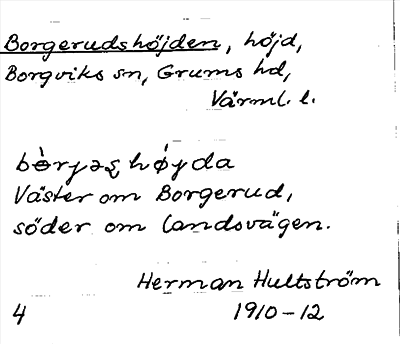 Borgerudshöjden, höjd,
Borgviks sn, Grums hd,
Värml. l.
Väster om Borgerud,
söder om landsvägen.
Herman Hultström
4 1910-12